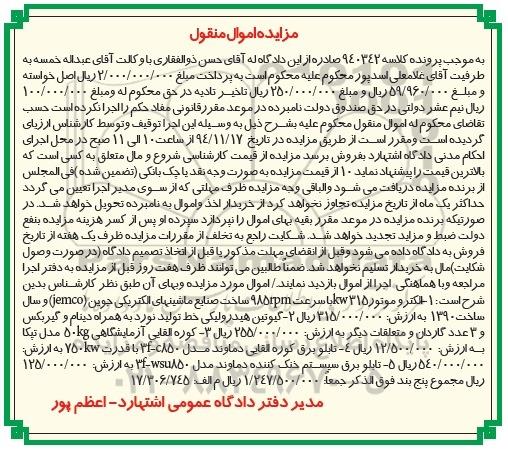 مزایده اموال منقول
به موجب پرونده کلاسه ۹۴۰۳۴۲ صادره از این دادگاه له آقای حسن ذوالفقاری با وکالت آقای عبداله خمسه به
طرفیت آقای غلامعلی اسدپور محکوم علیه محکوم است به پرداخت مبلغ ۲/۰۰۰/۰۰۰/۰۰۰ ریال اصل خواسته
و مبلغ ۵۹/۹۶۰/۰۰۰ ریال و مبلغ ۲۵۰/۰۰۰/۰۰۰ ریال تاخیر تادیه در حق محکوم له ومبلغ ۱۰۰/۰۰۰/۰۰۰
ریال نیم عشر دولتی در حق صندوق دولت نامبرده در موعد مقرر قانونی مفاد حکم را اجرا نکرده است حسب
تقاضای محکوم له اموال منقول محکوم علیه بشرح ذیل به وسیله این اجرا توقیف وتوسط کارشناس ارزیابی
گردیده است و مقرر است از طریق مزایده در تاریخ ۹۴/۱۱/۱۷ از ساعت ۱۰ الی ۱۱ صبح در محل اجرای
احکام مدنی دادگاه اشتهارد بفروش برسد مزایده از قیمت کارشناسی شروع و مال متعلق به کسی است که
بالاترین قیمت را پیشنهاد نماید ۱۰٪ از قیمت مزایده به صورت وجه نقد یا چک بانکی (تضمین شده) فی المجلس
از برنده مزایده دریافت می شود والباقی وجه مزایده ظرف مهلتی که از سوی مدیر اجرا تعیین می گردد
حداکثر یک ماه از تاریخ مزایده تجاوز نخواهد کرد از خریدار اخذ واموال به نامبرده تحویل خواهد شد. در
صورتیکه برنده مزایده در موعد مقرر بقیه بهای اموال را نپردازد سپرده او پس از کسر هزینه مزایده بنفع
دولت ضبط و مزاید تجدید خواهد شد. شکایت راجع به تخلف از مقررات مزایده ظرف یک هفته از تاریخ
فروش به دادگاه داده می شود وقبل از انقضای مهلت مذکور یا قبل از اتخاذ تصمیم دادگاه (در صورت وصول
شکایت)مال به خریدار تسلیم نخواهد شد. ضمنا طالبین می توانند ظرف هفت روز قبل از مزایده به دفتر اجرا
مراجعه وبا هماهنگی اجرا از اموال بازدید نمایند./ اموال مورد مزایده وبهای آن طبق نظر کارشناس بدین
شرح است: ۱-الکترو موتور ۳۱۵kw با سرعت ۹۸۵rpm ساخت صنایع ماشینهای الکتریکی جوین (jemco) و سال
ساخت ۱۳۹۰ به ارزش: ۳۱۵/۰۰۰/۰۰۰ ریال ۲-گیوتین هیدرولیکی خط تولید نورد به همراه دینام و گیربکس
و ۳ عدد گاردان و متعلقات دیگر به ارزش: ۲۵۵/۰۰۰/۰۰۰ ریال ۳- کوره القایی آزمایشگاهی ۵۰kg مدل تیکا
به ارزش: ۱۲/۵۰۰/۰۰۰ ریال ۴- تابلو برق کوره القایی دماوند مدل ۳f-c۸۵۰ با قدرت ۷۵۰kw به ارزش:
۵۴۰/۰۰۰/۰۰۰ ریال ۵- تابلو برق سیستم خنک کننده دماوند مدل ۳f-wsu۸۵۰ به ارزش: ۱۲۵/۰۰۰/۰۰۰
ریال مجموع پنج بند فوق الذکر جمعا: ۱/۲۴۷/۵۰۰/۰۰۰ ریال م الف: ۱۷/۳۰۶/۷۴۵
مدیر دفتر دادگاه عمومی اشتهارد- اعظم پور